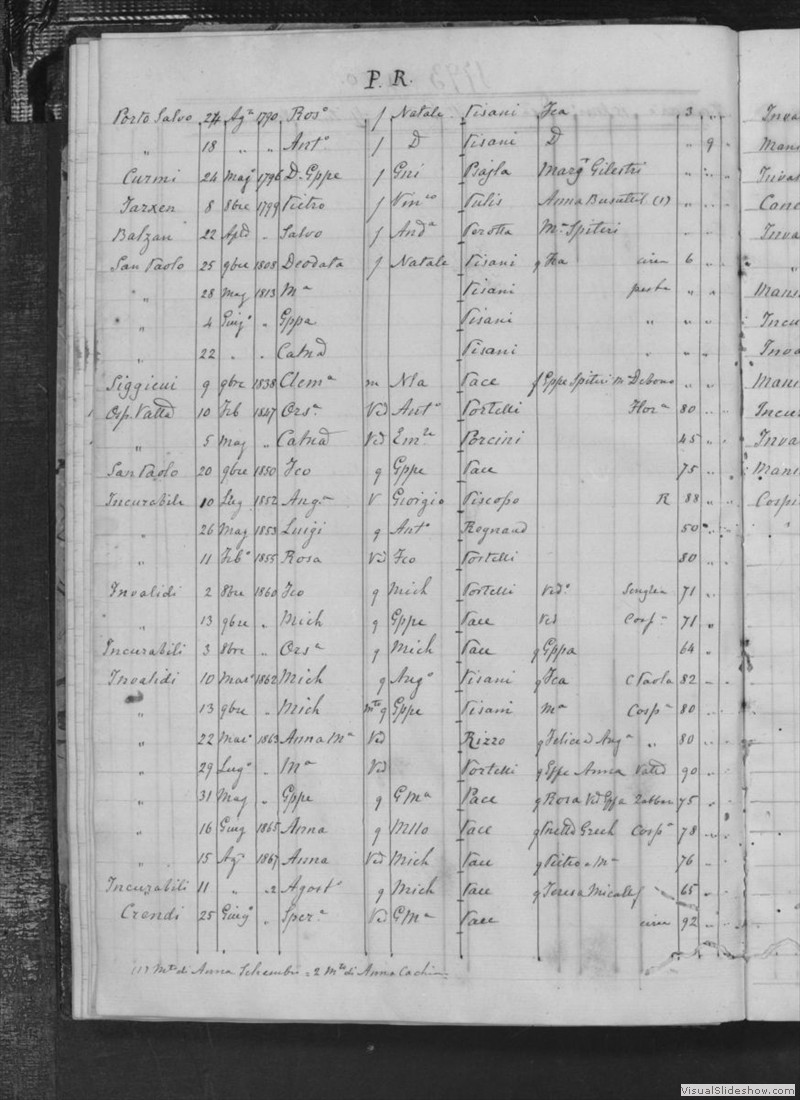 P. R.
Porto Salvo 24 Agº 1790 Rosº f Natale Pisani Fca 3 " Inva
" 18 " " Antº f D Pisani D " 9 " Mans
Curmi 24 Magº 1796 D. Gppe f Gni Bajla Margª Gilestri " " " Invas
Tarxen 8 8bre 1799 Pietro f Vinzo Pulis Anna Busuttil (1) " " " Canc
Balzan 22 Aple " Salvo f Andª Perotta Mª Spiteri Inva
San Paolo 25 9bre 1808 Deodata f Natale Pisani q Fca circa 6 " "
" 28 Mag 1813 Mª Pisani peste " " Mans
" 4 Giugº " Gppa Pisani " " Incu
" 22 " " Catnª Pisani " " Inva
Siggieui 9 9bre 1838 Clemª m Nla Pace f Gppe Spiteri m Debono Mans
Osp. Vallª 10 Feb 1847 Orsª Ved Antº Portelli Florª 80 " Incur
" 5 Mag " Catnª Ved Emle Porcini 45 " Inva
San Paolo 20 9bre 1850 Fco q Gppe Pace 75 " Mans
Incurabile 10 Lug 1852 Angª V Giorgio Piscopo R 88 " Cospi
" 26 Mag 1853 Luigi q Antº Regnaud 50 "
" 11 Febº 1855 Rosa Ved Fco Portelli 80 "
Invalidi 2 8bre 1860 Fco q Mich Portelli Vedº Senglea 71 "
" 13 9bre " Mich q Gppe Pace Ved Cospª 71 "
Incurabili 3 8bre " Orsª q Mich Pace q Gppa 64 "
Invalidi 10 Marº 1862 Mich q Angº Pisani q Fca C Paola 82 "
" 13 9bre " Mich mto q Gppe Pisani Mª Cospª 80 "
" 22 Marº 1863 Anna Mª Ved Rizzo q Felice d Angª " 80 "
" 29 Lugº " Mª Ved Portelli q Gppe Anna Vallª 90 "
" 31 Mag " Gppe q GMª Pace q Rosa Ved Gppa Zabbar 75 "
" 16 Giug 1865 Anna q Mllo Pace q Grech Cospª 78 "
" 15 Agº 1867 Anna Ved Mich Pace q Pietro e Mª 76 "
Incurabili 11 " " 2 Agostº q Mich Pace q Teresa Micalef 65 "
Crendi 25 Giugº " Sperª Ved GMª Pace circa 92 "
(1) Mto di Anna Schembri = 2 Mto di Anna Cachia
VisualSlideshow.com